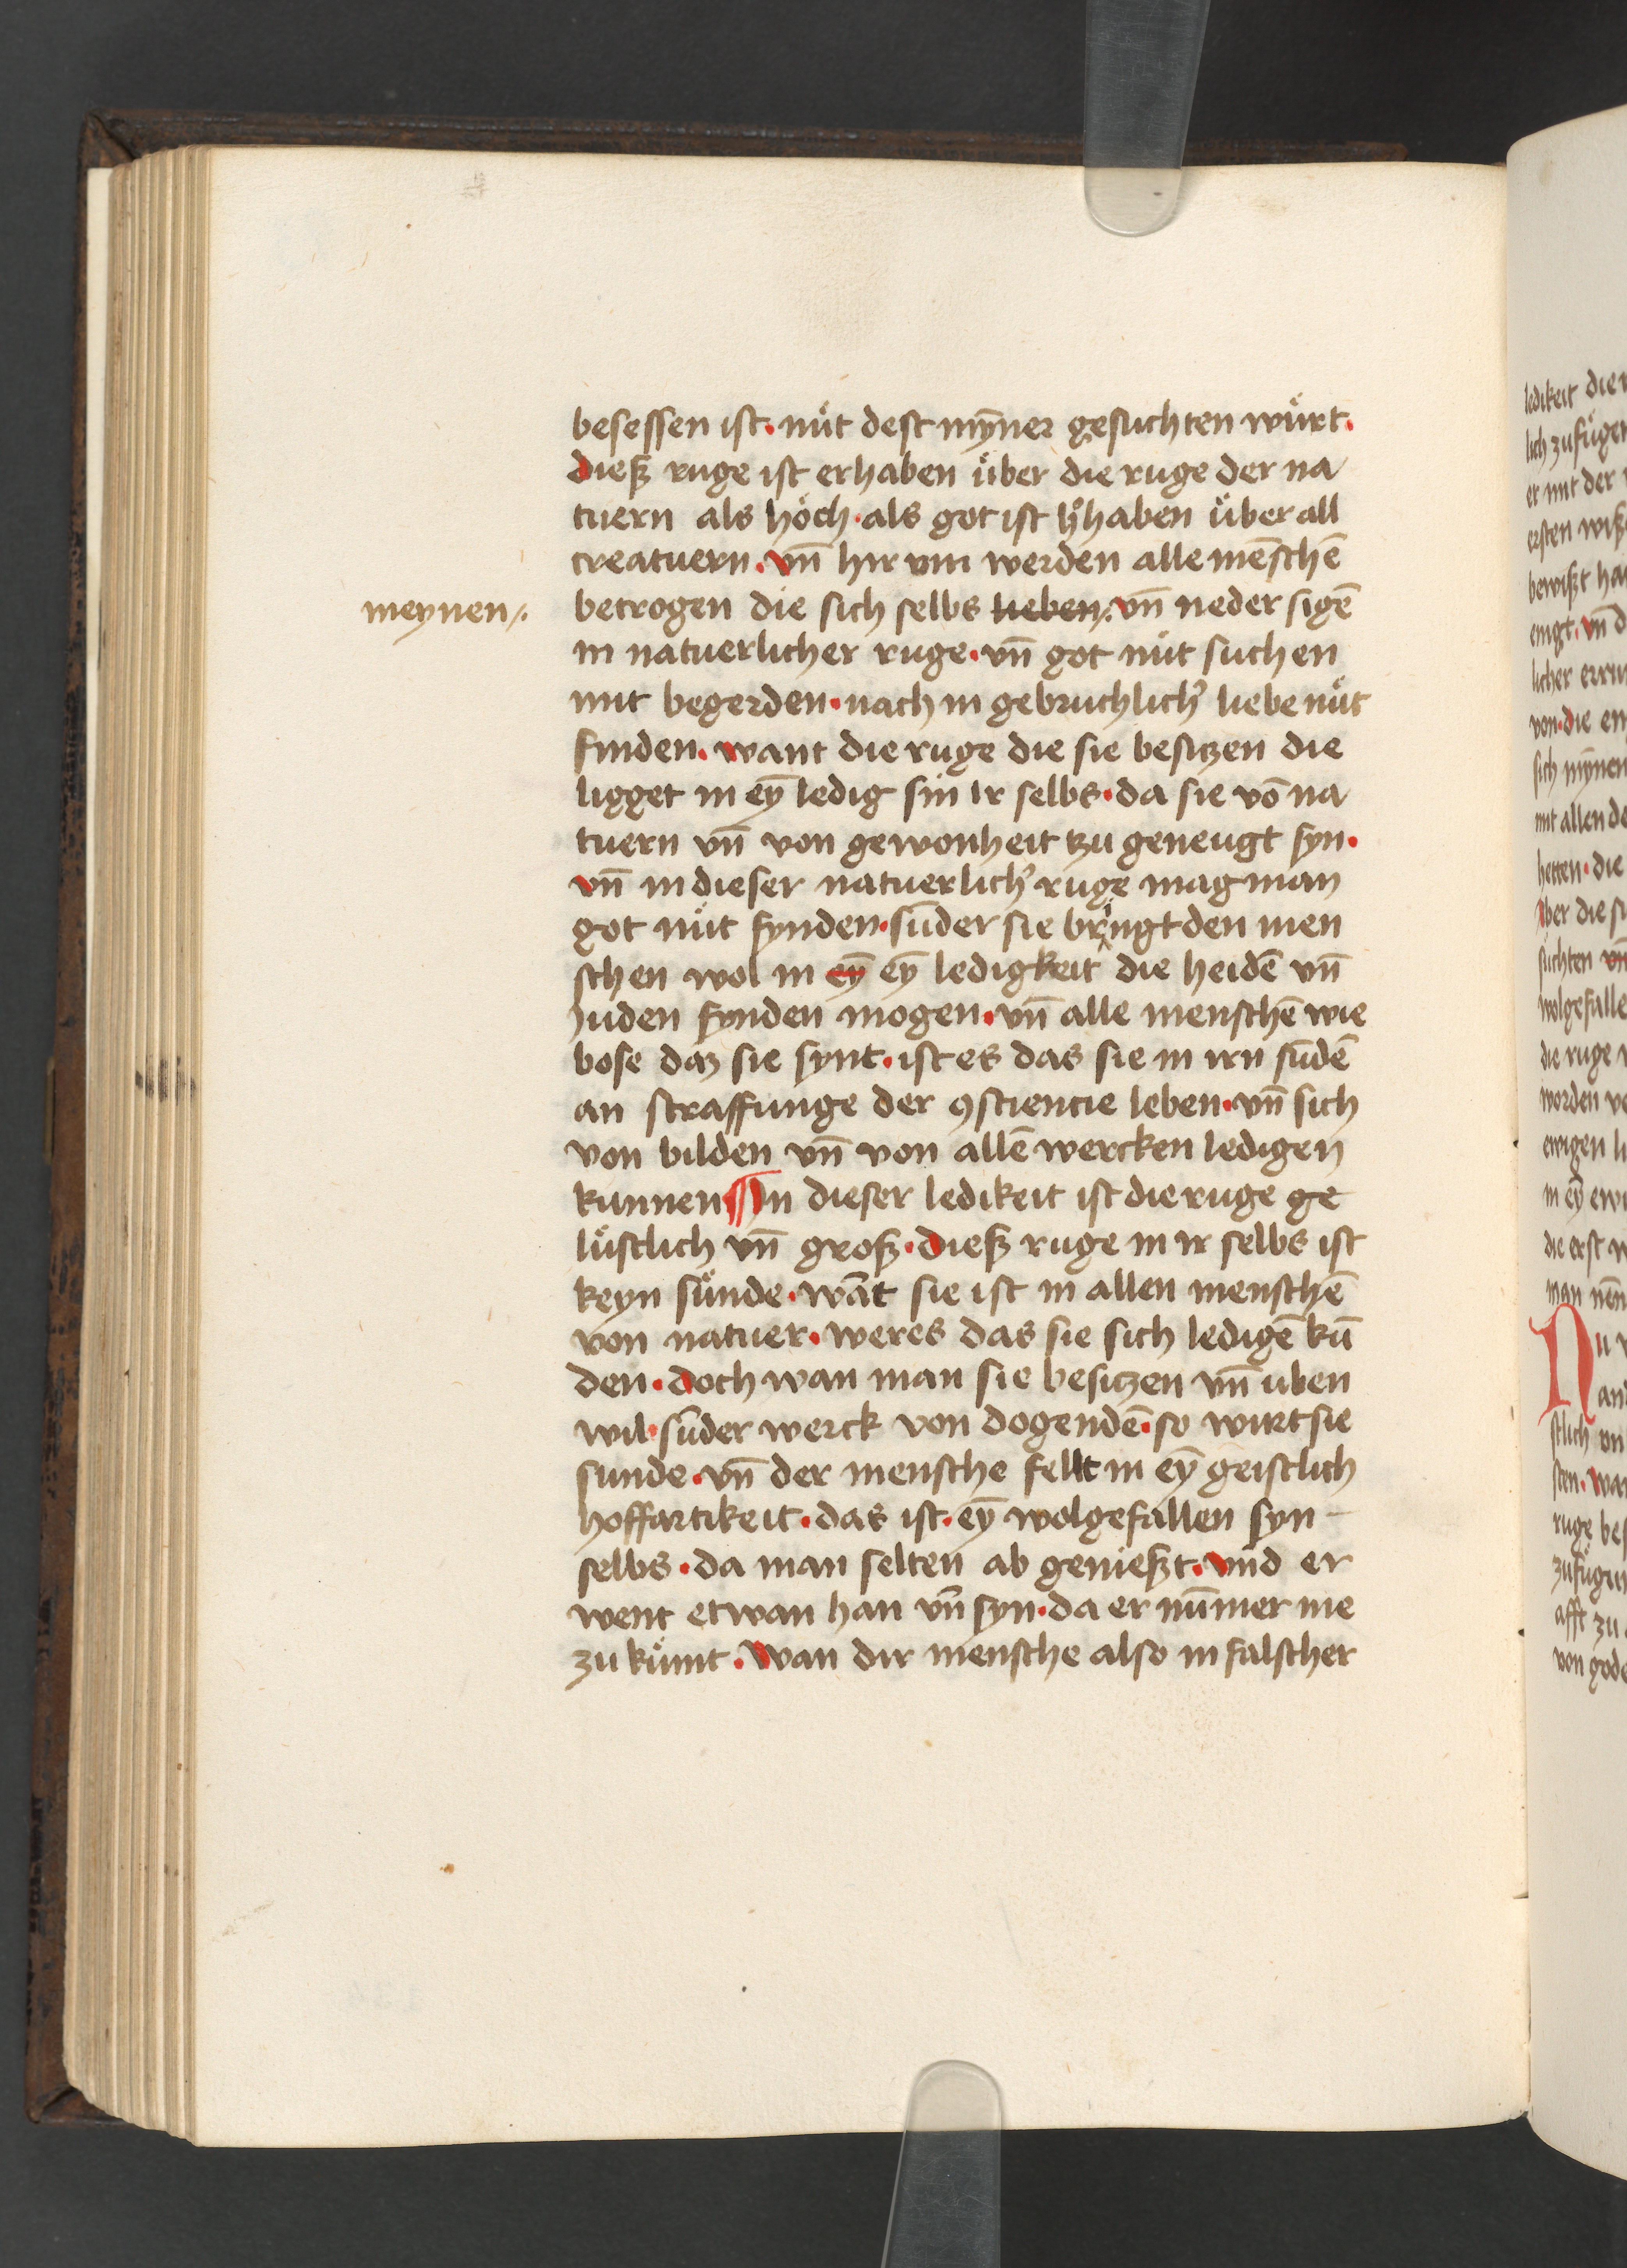 besessen ist. nuͤt dest myn̄er gesuchten wuͤrt.
dieß ruge ist erhaben uͤber die ruge der na
tuern als hoͤch. als got ist haben uͤber all
creatuern. vn̄ hir vm werden alle mēschē
meynen/.
betrogen die sich selbs lieben/. vn̄ neder sigē
in natuerlicher ruge. vn̄ got nuͤt suchen
mit begerden. nach in gebruchlich᾽ liebe nuͤt
finden. want die ruge die sie besitzen die
ligget in eȳ ledig sin ir selbs. da sie vō na
tuern vn̄ von gewonheit tzu geneugt syn.
vn̄ in dieser natuerlich᾽ ruge mag man
got nuͤt fynden. sūder sie bringt den men
schen wol in eȳ eȳ ledigkeit die heidē vn̄
Juden fynden mogen. vn̄ alle menschē wie
bose daz sie synt. ist es das sie in irn sūdē
an straffunge der ꝯsciencie leben. vn̄ sich
von bilden vn̄ von allē wercken ledigen
kunnen In dieser ledikeit ist die ruge ge
luͤstlich vn̄ groß. dieß ruge in ir selbs ist
keyn suͤnde. wāt sie ist in allen menschē
von natuer. weres das sie sich ledigē kū
den. doch wan man sie besitzen vn̄ uben
wil. sūder werck von dogendē. so wurt sie
sunde. vn̄ der mensche fellt in eȳ geistlich
hoffartikeit. das ist. eȳ wolgefallen syn
selbs. da man selten ab genießt. vnd er
went etwan han vn̄ syn. da er nūmer me
zu kuͤmt. Wan dir mensche also in falscher
ledikeit die
lich zufuͤget
er mit der
ersten
bewißt
licher
von. die
sich mynen
mit allen
hetten. die
Aber die
suchten vn̄
wolgefalle
die ruge
worden
ewigen
in eȳ
die erst
man
Nu
stlich
sten.
ruge
zufuͤgen
afft zu
von gode